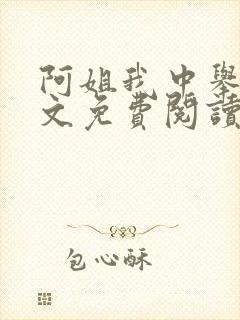 阿姐我中舉
文免費閱讀
包心酥